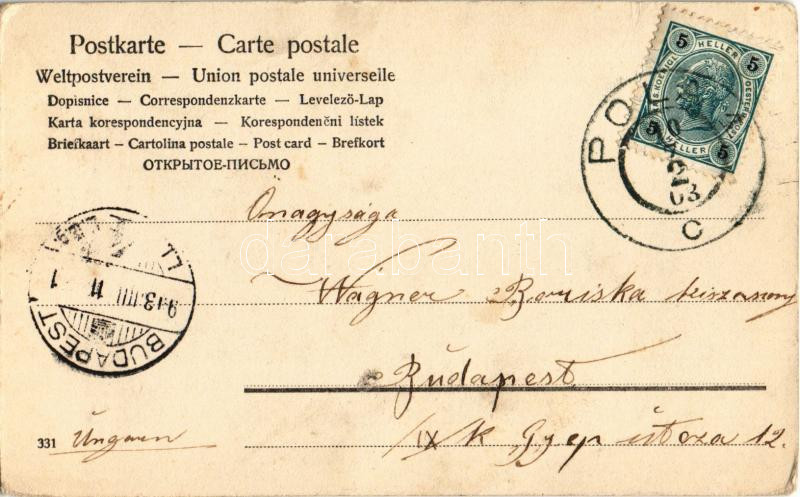 Postkarte — Carte postale
Weltpostverein — Union postale universelle
Dopisnice — Correspondenzkarte — Levelező-Lap
Karta korespondencyjna — Korespondenčni lístek
Briefkaart — Cartolina postale — Post card — Brefkort
ОТКРЫТОЕ-ПИСЬМО
5 HELLER 5
5 HELLER 5
POL
03
C
Önagysága
Wagner Boriska kisasszony
Budapest
IX K Gyep útcza 12.
BUDAPEST
331 Ungarn
darabanth